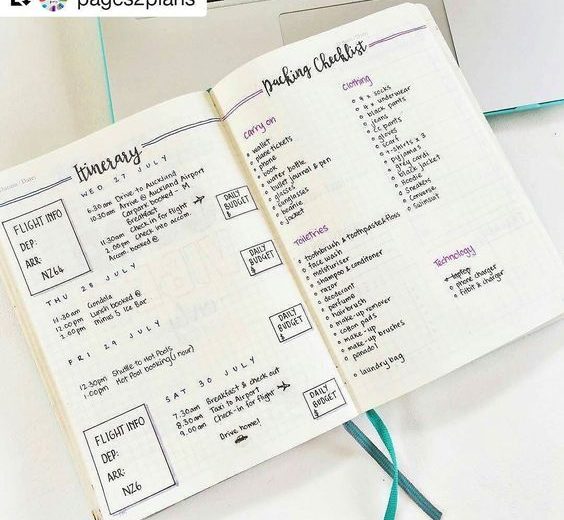 pages2plans
Itinerary
WED 27 JULY
FLIGHT INFO
DEP:
ARR:
NZ64
6.30am Drive to Auckland
10.30am Arrive @ Auckland Airport
Carpark booked - M
Breakfast
11.30am Check in for flight
2.00pm Check into accom.
Accom. booked @
DAILY
BUDGET
$
THU 28 JULY
11.30am Gondola
12.00pm Lunch booked @
2.00pm Minus 5 Ice Bar
DAILY
BUDGET
$
FRI 29 JULY
12.30pm Shuttle to Hot Pools
1.00pm Hot Pool booking (1 hour)
DAILY
BUDGET
$
SAT 30 JULY
7.30am Breakfast & check out
8.30am Taxi to Airport
9.00am Check-in for flight
Drive home!
DAILY
BUDGET
$
FLIGHT INFO
DEP:
ARR:
NZ6
Packing Checklist
Carry on
wallet
plane tickets
phone
book
water bottle
bullet journal & pen
glasses
sunglasses
beanie
jacket
Clothing
4 x socks
4 x underwear
black pants
jeans
pants
gloves
scarf
t-shirts x 3
pyjamas
grey cardi
black jacket
hoodie
sneakers
converse
swimsuit
Toiletries
toothbrush & toothpaste & floss
face wash
moisturiser
shampoo & conditoner
razor
deodorant
perfume
hairbrush
make-up remover
cotton pads
make-up
make-up brushes
panadol
laundry bag
Technology
laptop
phone charger
fitbit & charger